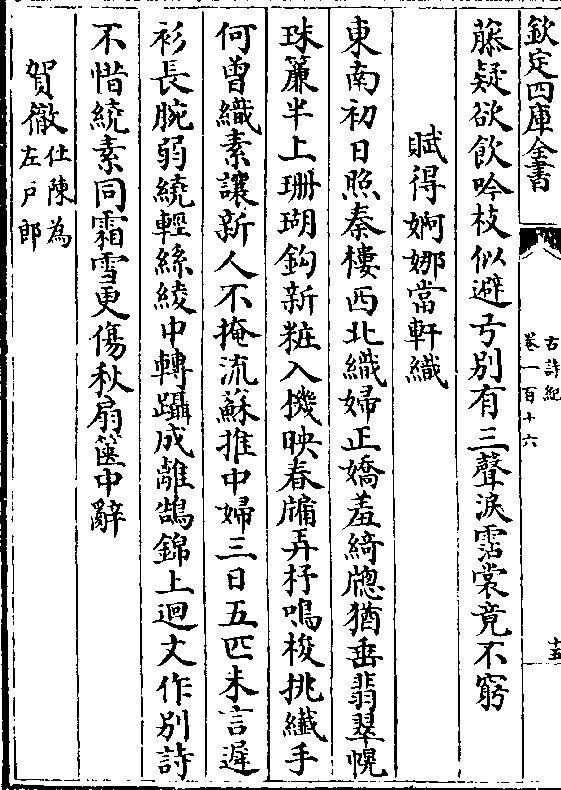 欽定四庫全書
古詩紀
卷一百十六
十五
藤疑欲飲吟枝似避弓別有三聲淚霑裳竟不窮
賦得婀娜當軒織
東南初日照秦樓西北織婦正嬌羞綺牕猶垂翡翠幌
珠簾半上珊瑚鈎新粧入機映春牗弄杼鳴梭挑纎手
何曾織素讓新人不掩流蘇推中婦三日五匹未言遲
衫長腕弱繞輕絲綾中轉躡成離鵠錦上迴文作别詩
不惜紈素同霜雪更傷秋扇篋中辭
賀徹仕陳為
左戸郎